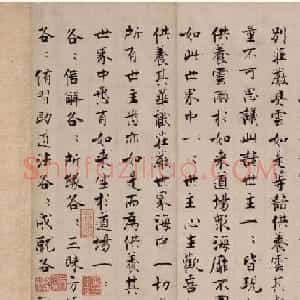 別莊嚴具雲如是等諸供養
量不可思議此諸世主一〻皆現
供養雲雨於如來道場眾海靡不
如此世界中一〻世主心生歡喜
供養其華藏莊嚴世界海中一切
所有世主悉亦如是而為供養其
世界中悉有如來坐於道場一〻
各〻信解各〻所緣各〻三昧方
各〻脩習助道法各〻成就各
Shufaziliao.com